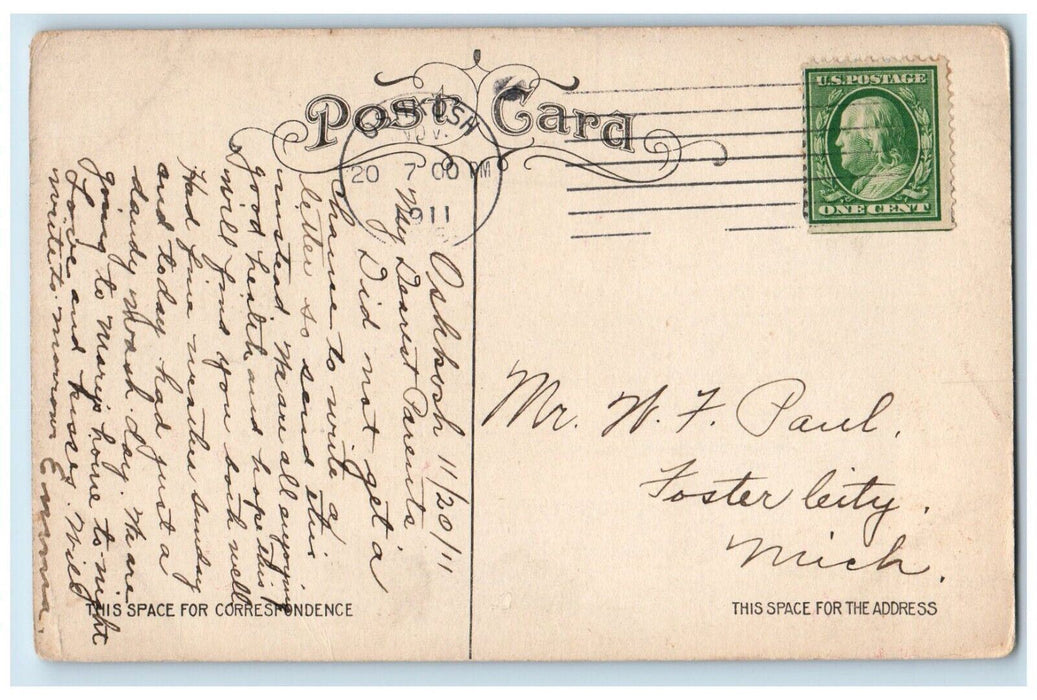 Post Card
OSHKOSH
NOV.
20 7 00 PM
1911
U.S. POSTAGE
ONE CENT
Oshkosh 11/20/11
My Dearest Parents
Did not get a
chance to write a
letter so send this
instead. We are all enjoying
good health and hope this
will find you both well
Had fine weather Sunday
and today. had just a
dandy wash day. We are
going to Marys home to night
Love and kisses. Will
write to morrow Emma.
Mr. W. F. Paul.
Foster City.
Mich.
THIS SPACE FOR CORRESPONDENCE
THIS SPACE FOR THE ADDRESS